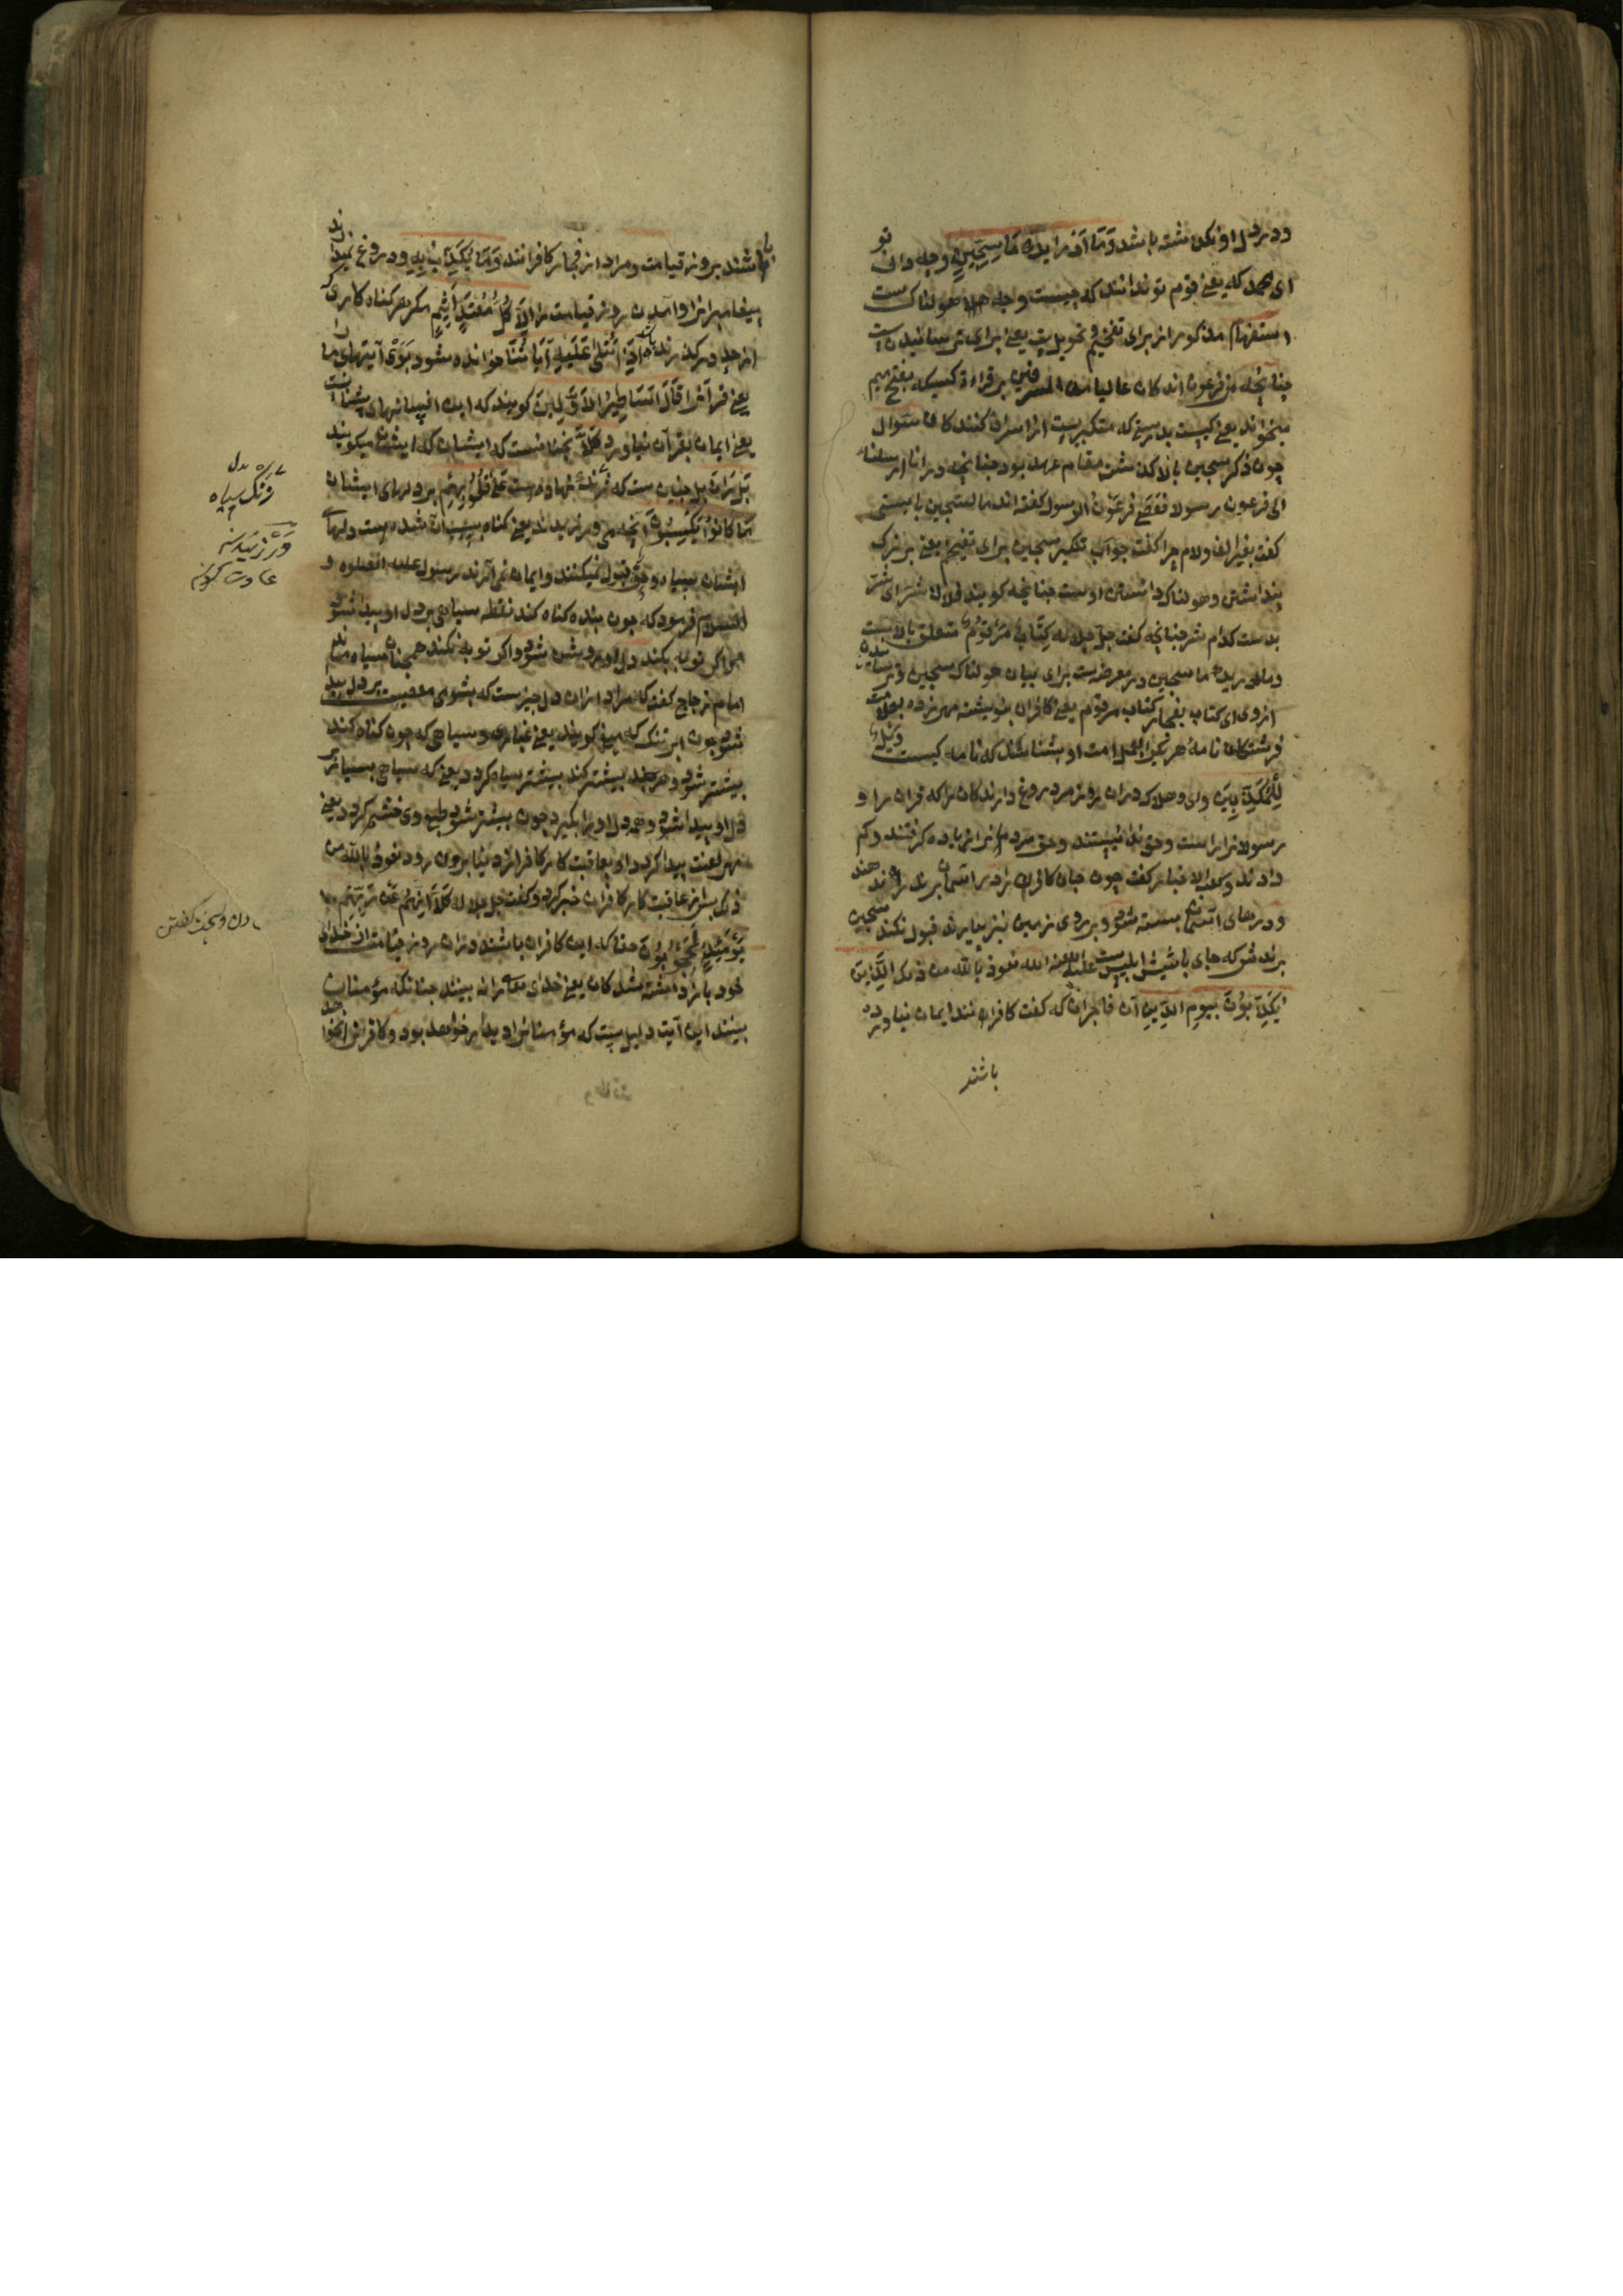 ودر دل او نکن نشته باشد وَمَا أَدْرَايكَ مَا سِجِّينٍ وچه دانی تو
ای محمد که یعنی قوم تو ندانند که چیست وچه هولناک ست
استفهام مذکور از برای تفخیم و تحویل یعنی برای ترسانیدن است
چنانچه من فرعون انه کان عالیا من المسرفین بر قراءة کسیکه بفتح میم
بخواند یعنی کیست بدرستی که متکبرست از اسراف کنندکان سئوال
چون ذکر سجین بالا کذشت مقام عهد بود چنانچه در انا ارسلنا
الی فرعون رسولا فعصی فرعون الرسول کفته اند ما السجین بایستی
کفت بغیر الف ولام چرا کفت جواب تنکیر سجین برای تفخیم یعنی بزرک
پنداشتن وهولناک داشتن اوست چنانچه کویند فلان شر ای شر
بدست کدام شر چنانچه کفت جل جلاله كِتَابٌ مَرْقُومٌ متعلق بالاست
وما ادریک ما سجین در معرض ست برای بیان هولناک سجین
از وی ای کتاب الفجار کتاب مرقوم یعنی کافران نویشته مهر زده بعلامت
فرشتکان نامهٔ هر یکی را بعلامت او بشناسند که نامه کیست وَيْلٌ
لِلْمُكَذِّبِينَ وای وهلاک دران روز مر دروغ دارندکان را که قران را و
رسولانرا راست وحق ندانستند وحق مردمانرا زیاده کرفتند وکم
دادند وکعب الاخبار کفت چون جان کافران را در آسمان برند راه ندهند
ودرهای آسمان بسته شود وبر روی زمین نیز بیارند قبول نکند سجین
برندش که جای باشیش ابلیس ست علیه اللعنه نعوذ بالله من ذلک الَّذِينَ
يُكَذِّبُونَ بِيَوْمِ الدِّينِ آن فاجران که کفت کافران اند ایمان نیاورده
باشند
باشند بروز قیامت ومراد از فجار کافرانند وَمَا يُكَذِّبُ بِهِ ودروغ نمیدارند
پیغامبرانرا وآمدن روز قیامت را إِلَّا كُلُّ مُعْتَدٍ أَثِيمٍ مکر هر کناه کاری که
از حد در کذرنده باشد إِذَا تُتْلَى عَلَيْهِ آيَاتُنَا خوانده شود بَرْوَی آیتهای ما را
یعنی قرآنرا قَالَ أَسَاطِيرُ الأَوَّلِينَ کویند که این افسانهای پیشنیانست
یعنی ایمان بقرآن نیاورد كَلَّا نچنانست که ایشان میکویند
بَلْ رَانَ بل چنین ست که زنک نهاده است عَلَى قُلُوبِهِمْ بر دلهای ایشان
مَا كَانُوا يَكْسِبُونَ آنچه می ورزیدند یعنی کناه بسبب آن شده ست دلهای
ایشان سیاه وحق قبول نمیکنند وایمان نمی آرند رسول علیه الصلوه و
السلام فرمود که چون بنده کناه کند نقطه سیاهی بر دل او پیدا شود
واکر توبه بکند دل او روشن شود واکر توبه نکند همچنان سیاه ماند
امام زجاج کفت که مراد از ران دل چیزست که بشومی معصیت بر دل پیدا
شود چون ابر تنک که میغ کویند یعنی غباری وسیاهی که چون کناه کند
بیشتر شود وهر چند بیشتر کند بیشتر سیاه کردد یعنی که سیاهی بسیار در
دل او پیدا شود وهمه دل او را بکیرد چون بیشتر شود طبع وی ختم کردد یعنی
مهر لعنت پیدا کردد او بعاقبت کار کافر از دنیا برون رود نعوذ بالله من
ذلک بس از عاقبت کار کافران خبر کرد وکفت جل جلاله كَلَّا إِنَّهُمْ عَنْ رَبِّهِمْ
يَوْمَئِذٍ لَمَحْجُوبُونَ حقا که این کافران باشند دران روز قیامت از خدای
خود باز داشته شدکان یعنی خدای تعالی را نه بینند چنانکه مؤمنان
بینند این آیت دلیل ست که مؤمنانرا دیدار خواهد بود وکافرانرا نخواهد
زنک سیاه
وَرْزِیدن
عادت کردن